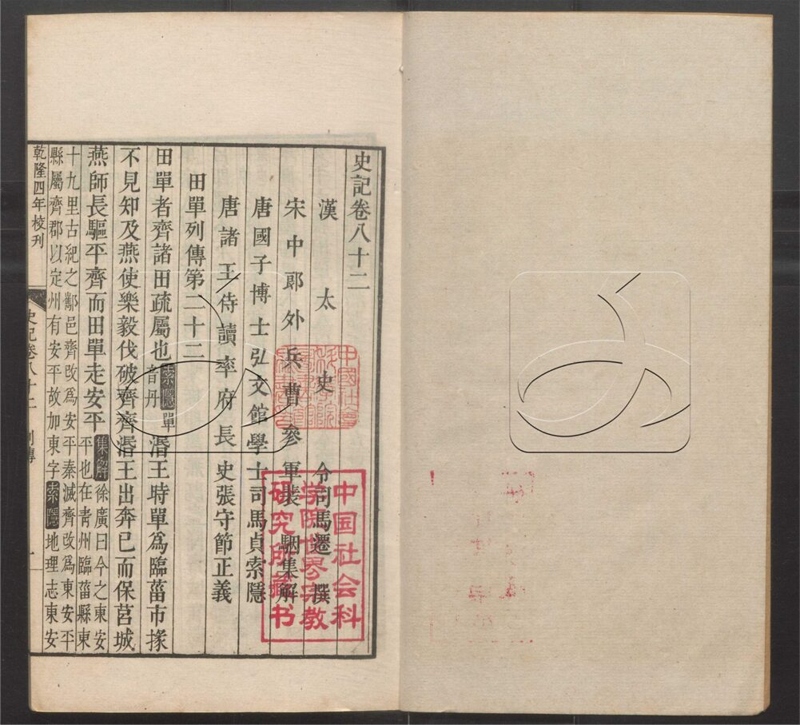 史記卷八十二
漢太史令司馬遷撰
宋中郎外兵曹參軍裴駰集解
唐國子博士弘文館學士司馬貞索隱
唐諸王侍讀率府長史張守節正義
田單列傳第二十二
田單者齊諸田疏屬也索隱單音丹湣王時單爲臨菑市掾
不見知及燕使樂毅伐破齊齊湣王出奔已而保莒城
燕師長驅平齊而田單走安平集解徐廣曰今之東安平也在青州臨菑縣東
十九里古紀之酅邑齊改爲安平秦滅齊改爲東安平
縣屬齊郡以定州有安平故加東字索隱地理志東安
乾隆四年校刊
史記卷八十二
列傳
一
中国社会科
学院世界宗教
研究所藏书